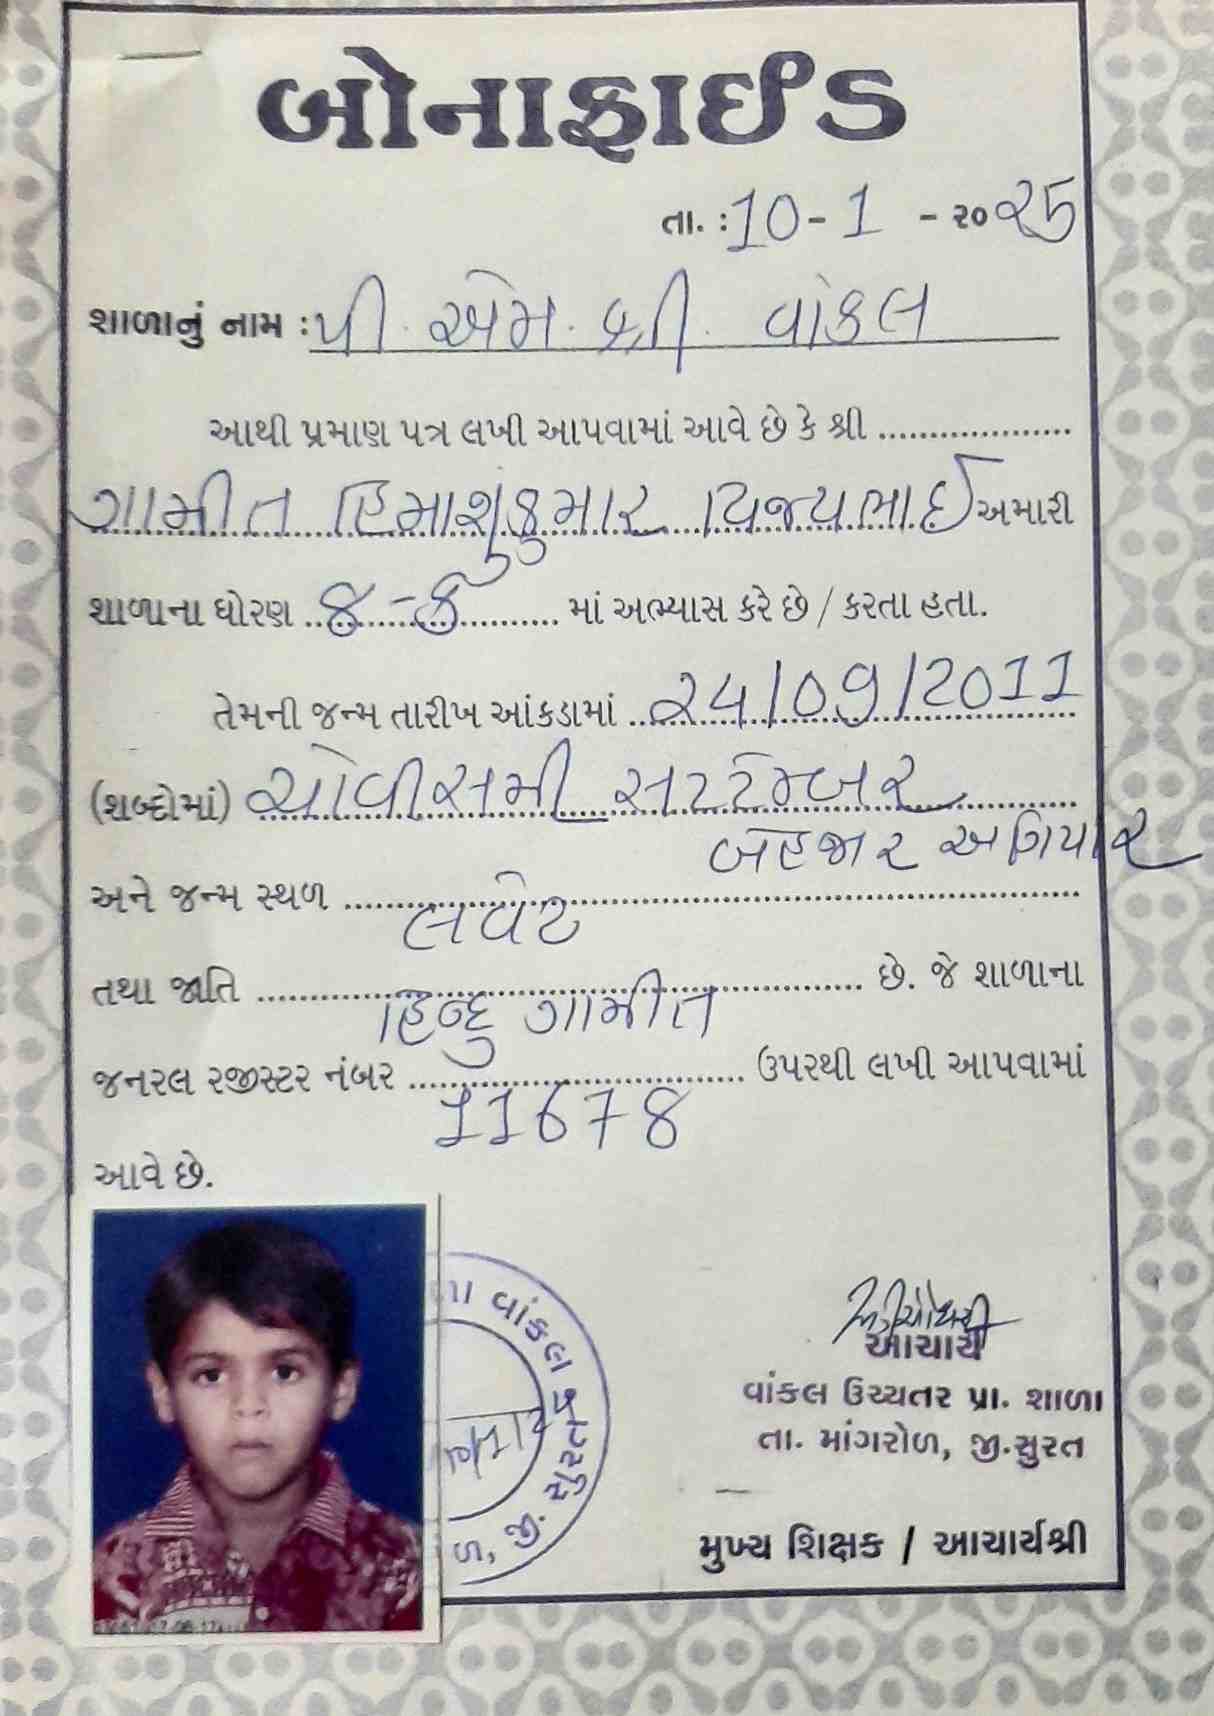 બોનાફાઈડ
તા. : 10 - 1 - ૨૦૨5
શાળાનું નામ : પી. એમ. શ્રી. વાંકલ
આથી પ્રમાણ પત્ર લખી આપવામાં આવે છે કે શ્રી ....................
ગામીત હિમાશુકુમાર વિજયભાઈ અમારી
શાળાના ધોરણ ..૪ - ક.......... માં અભ્યાસ કરે છે / કરતા હતા.
તેમની જન્મ તારીખ આંકડામાં ..૨4/09/2011
(શબ્દોમાં) ચોવીસમી સપ્ટેમ્બર
બેહજાર અગિયાર
અને જન્મ સ્થળ ....................
લવેટ
તથા જાતિ .................... છે. જે શાળાના
હિન્દુ ગામીત
જનરલ રજીસ્ટર નંબર .................... ઉપરથી લખી આપવામાં
11678
આવે છે.
વાંકલ
જી. સુરત
આચાર્ય
વાંકલ ઉચ્ચતર પ્રા. શાળા
તા. માંગરોળ, જી.સુરત
મુખ્ય શિક્ષક / આચાર્યશ્રી